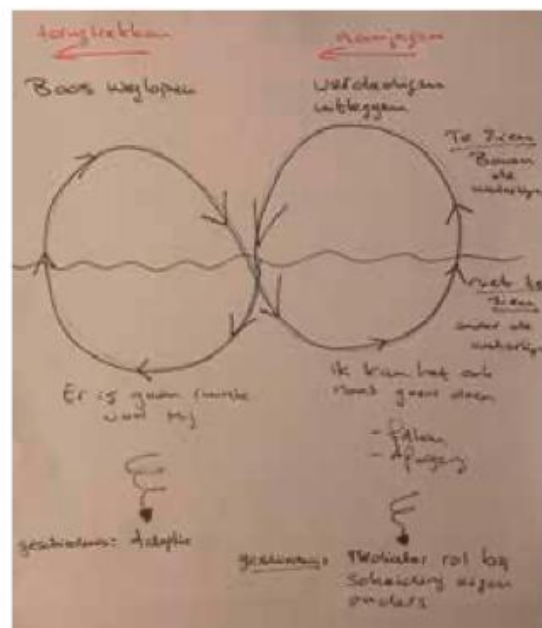 terugtrekken
Boos weglopen
Er is geen ruimte
voor mij
geschiedenis: Adoptie
verdedigen
uitleggen
Te Zien
Boven
de
waterlijn
niet te
Zien
onder de
waterlijn
Ik kan het ook
nooit goed doen
- falen
- Afwijzing
geschiedenis: Mediator rol bij
scheiding eigen
ouders